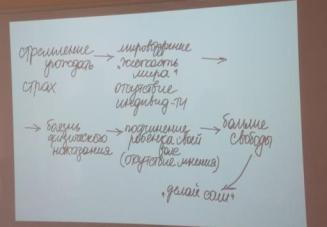 стремление
угождать
страх
мировоззрение
"жестокость
мира"
отсутствие
индивид-ти
боязнь
физического
наказания
подчинение
ребенка своей
воле
(отсутствие мнения)
больше
свободы
"делай сам"